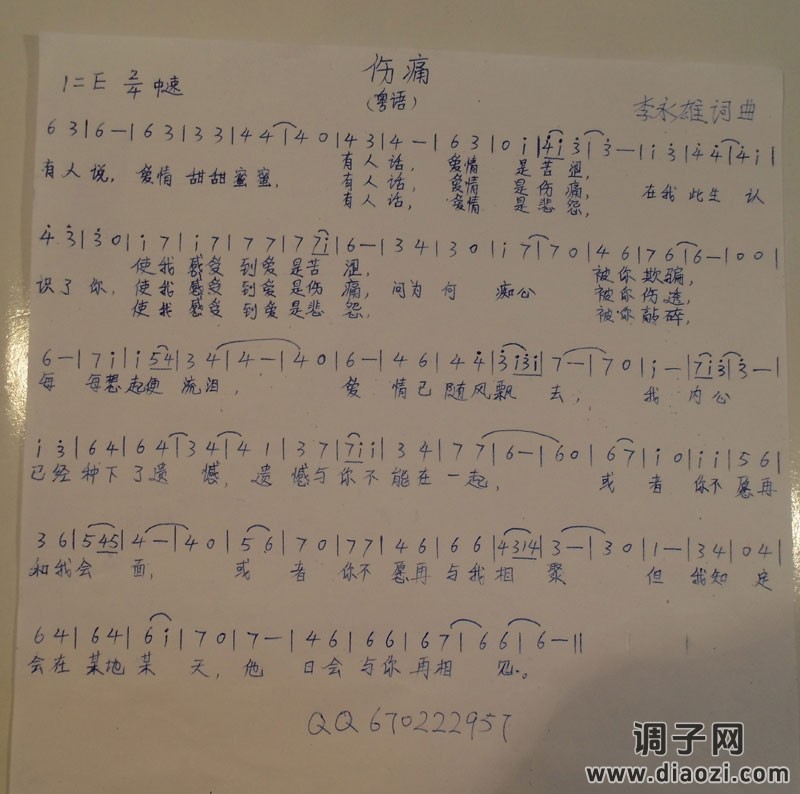 伤痛
1=E 2/4 中速
(粤语)
李永雄词曲
6 3 | 6 — | 6 3 | 3 3 | 4 4 | 4 0 | 4 3 | 4 — | 6 3 | 0 i | 4 i 3 | 3 — | i 3 | 4 4 | 4 i |
有人说，爱情甜甜蜜蜜，有人话，爱情是苦涩，
有人话，爱情是伤痛，在我此生认
有人话，爱情是悲怨，
4 3 | 3 0 | i 7 | i 7 | 7 7 | 7 7 i | 6 — | 3 4 | 3 0 | i 7 | 7 0 | 4 6 | 7 6 | 6 — | 0 0 |
使我感受到爱是苦涩，被你欺骗，
识了你，使我感受到爱是伤痛，问为何痴心被你伤透，
使我感受到爱是悲怨，被你敲碎，
6 — | 7 i | i 5 4 | 3 4 | 4 — | 4 0 | 6 — | 4 6 | 4 4 | 3 i 3 i | 7 — | 7 0 | i — | 7 i 3 | 3 — |
每每想起便流泪，爱情已随风飘去，我内心
i 3 | 6 4 | 6 4 | 3 4 | 4 1 | 3 7 | 7 i i | 3 4 | 7 7 | 6 — | 6 0 | 6 7 | i 0 | i i | 5 6 |
已经种下了遗憾，遗憾与你不能在一起，或者你不愿再
3 6 | 5 4 5 | 4 — | 4 0 | 5 6 | 7 0 | 7 7 | 4 6 | 6 6 | 4 3 1 4 | 3 — | 3 0 | 1 — | 3 4 | 0 4 |
和我会面，或者你不愿再与我相聚但我知定
6 4 | 6 4 | 6 i | 7 0 | 7 — | 4 6 | 6 6 | 6 7 | 6 6 | 6 — ||
会在某地某天，他日会与你再相见。
QQ 670222957
调子网
www.diaozi.com